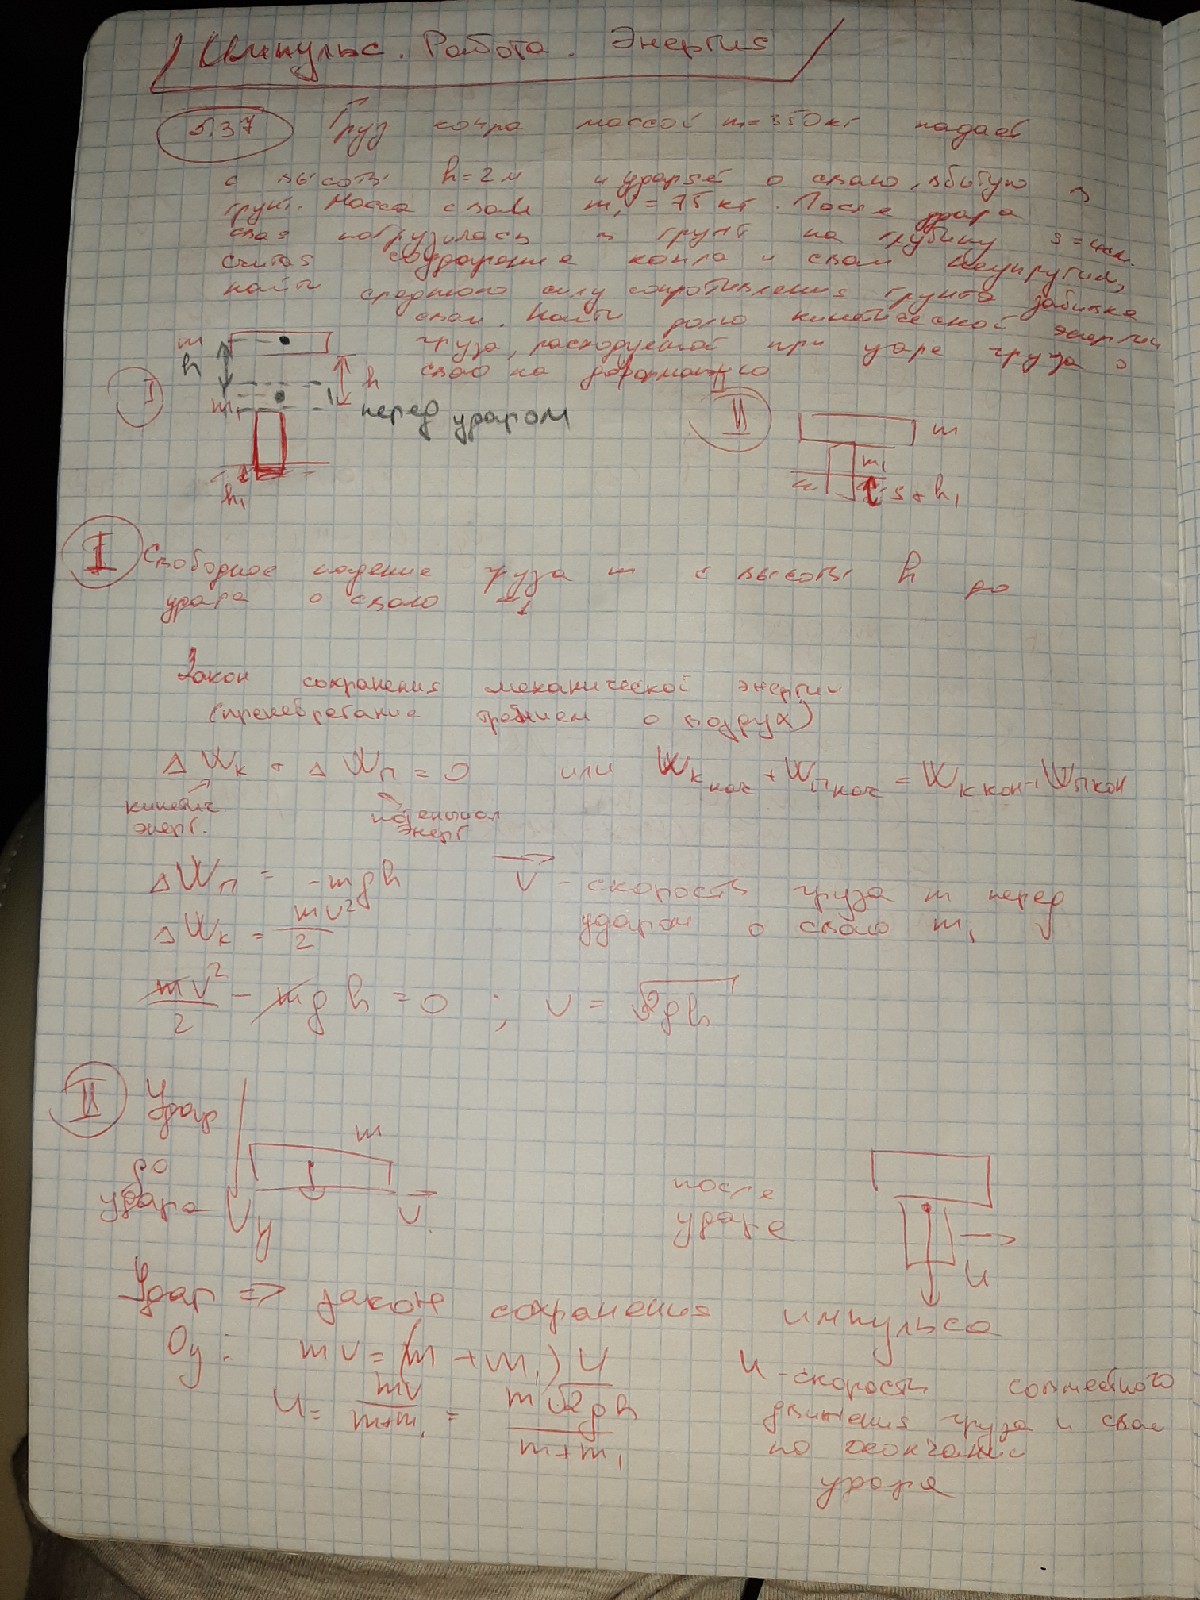 Импульс. Работа. Энергия
5.37 Груз копра массой m = 350 кг падает
с высоты h = 2 м и ударяет о сваю, вбитую в
грунт. Масса сваи m₁ = 75 кг. После удара
свая погрузилась в грунт на глубину s =
Считая соударение копра и сваи неупругим,
найти среднюю силу сопротивления грунта забивке
сваи. Найти долю кинетической энергии
груза, расходуемой при ударе груза о
сваю на деформацию
m
h
h
I
m₁
перед ударом
h₁
II
m
m₁
I Свободное падение груза m с высоты h до
удара о сваю
Закон сохранения механической энергии
(пренебрегание трением о воздух)
Δ Wк + Δ Wп = 0 или Wк нач + Wп нач = Wк кон + Wп кон
кинетич энерг.
энерг
ΔWп = -mgh
v - скорость груза m перед
ударом о сваю m₁
ΔWк = mv²/2
mv²/2 - mgh = 0 ; v = √2gh
II Удар
m
до
удара
v
y
после
удара
u
Удар => закон сохранения импульса
Oy: mv = (m + m₁) u
u = mv/m+m₁ = m√2gh/m+m₁
u - скорость совместного
движения груза и сваи
по окончании
удара